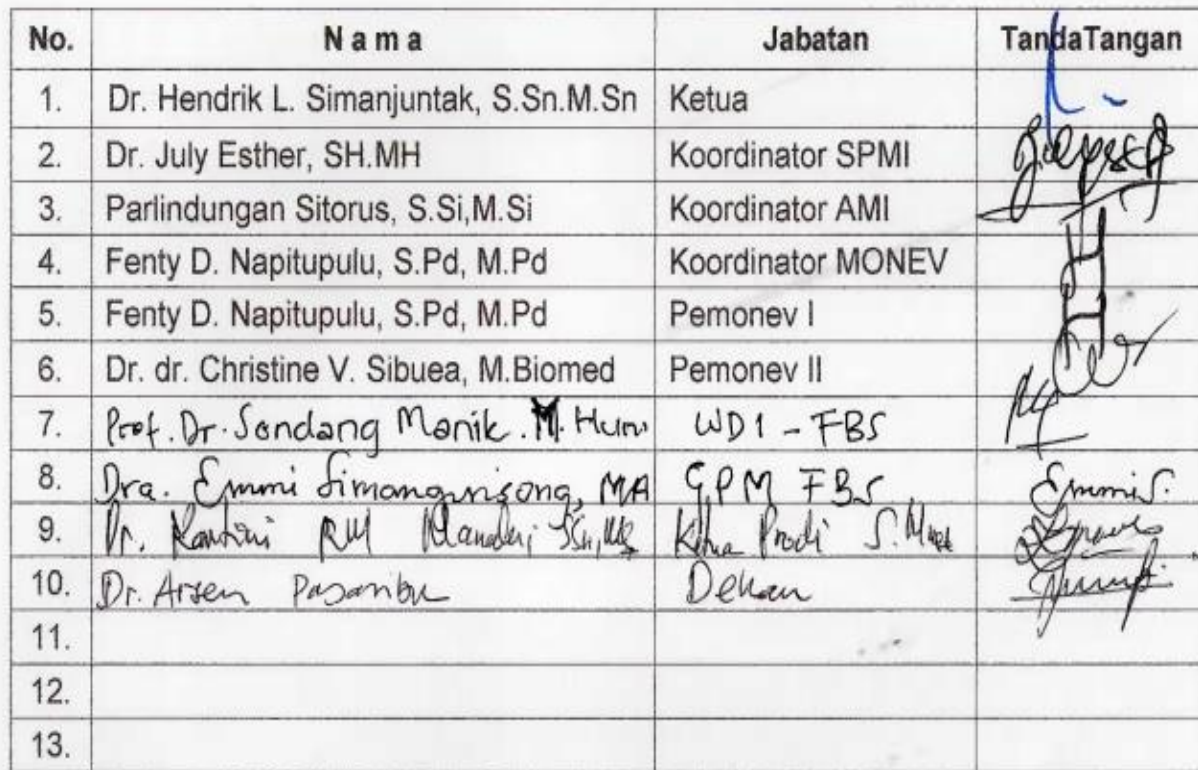 No. Nama Jabatan TandaTangan
1. Dr. Hendrik L. Simanjuntak, S.Sn.M.Sn Ketua
2. Dr. July Esther, SH.MH Koordinator SPMI
3. Parlindungan Sitorus, S.Si,M.Si Koordinator AMI
4. Fenty D. Napitupulu, S.Pd, M.Pd Koordinator MONEV
5. Fenty D. Napitupulu, S.Pd, M.Pd Pemonev I
6. Dr. dr. Christine V. Sibuea, M.Biomed Pemonev II
7. Prof. Dr. Sondang Manik. M. Hum WD1 - FBS
8. Dra. Emmi Simangunsong, MA GPM FBS Emmi S.
9. Dr. RM Prodi S.
10. Dr. Arsen Pasaribu Dekan
11.
12.
13.